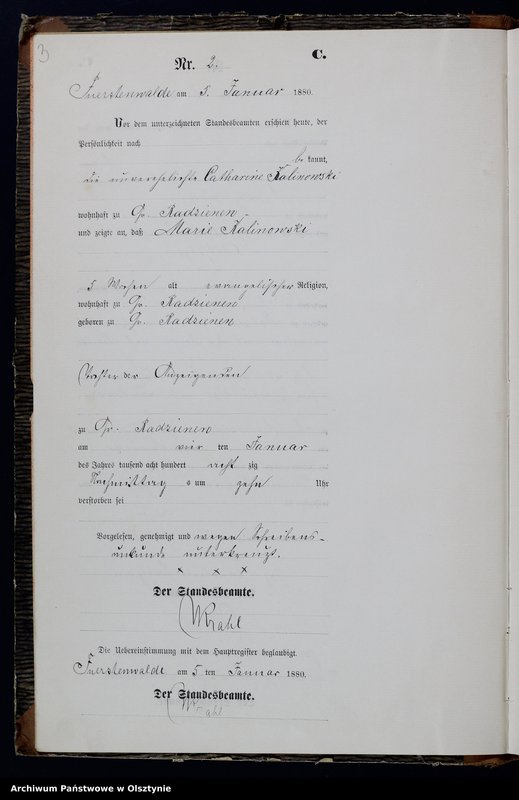 3
C.
Nr. 2.
Fuerstenwalde am 5. Januar 1880.
Vor dem unterzeichneten Standesbeamten erschien heute, der
Persönlichkeit nach
be kannt,
die unverehelichte Catharine Kalinowski
wohnhaft zu Gr. Radzienen
und zeigte an, daß Marie Kalinowski
5 Wochen alt evangelischer Religion,
wohnhaft zu Gr. Radzienen
geboren zu Gr. Radzienen
Tochter der Anzeigenden
zu Gr. Radzienen
am vier ten Januar
des Jahres tausend acht hundert acht zig
Nachmittag s um zehn Uhr
verstorben sei
Vorgelesen, genehmigt und wegen Schreibens-
unkunde unterkreuzt.
x x x
Der Standesbeamte.
Die Uebereinstimmung mit dem Hauptregister beglaubigt.
Fuerstenwalde am 5 ten Januar 1880.
Der Standesbeamte.
Archiwum Państwowe w Olsztynie